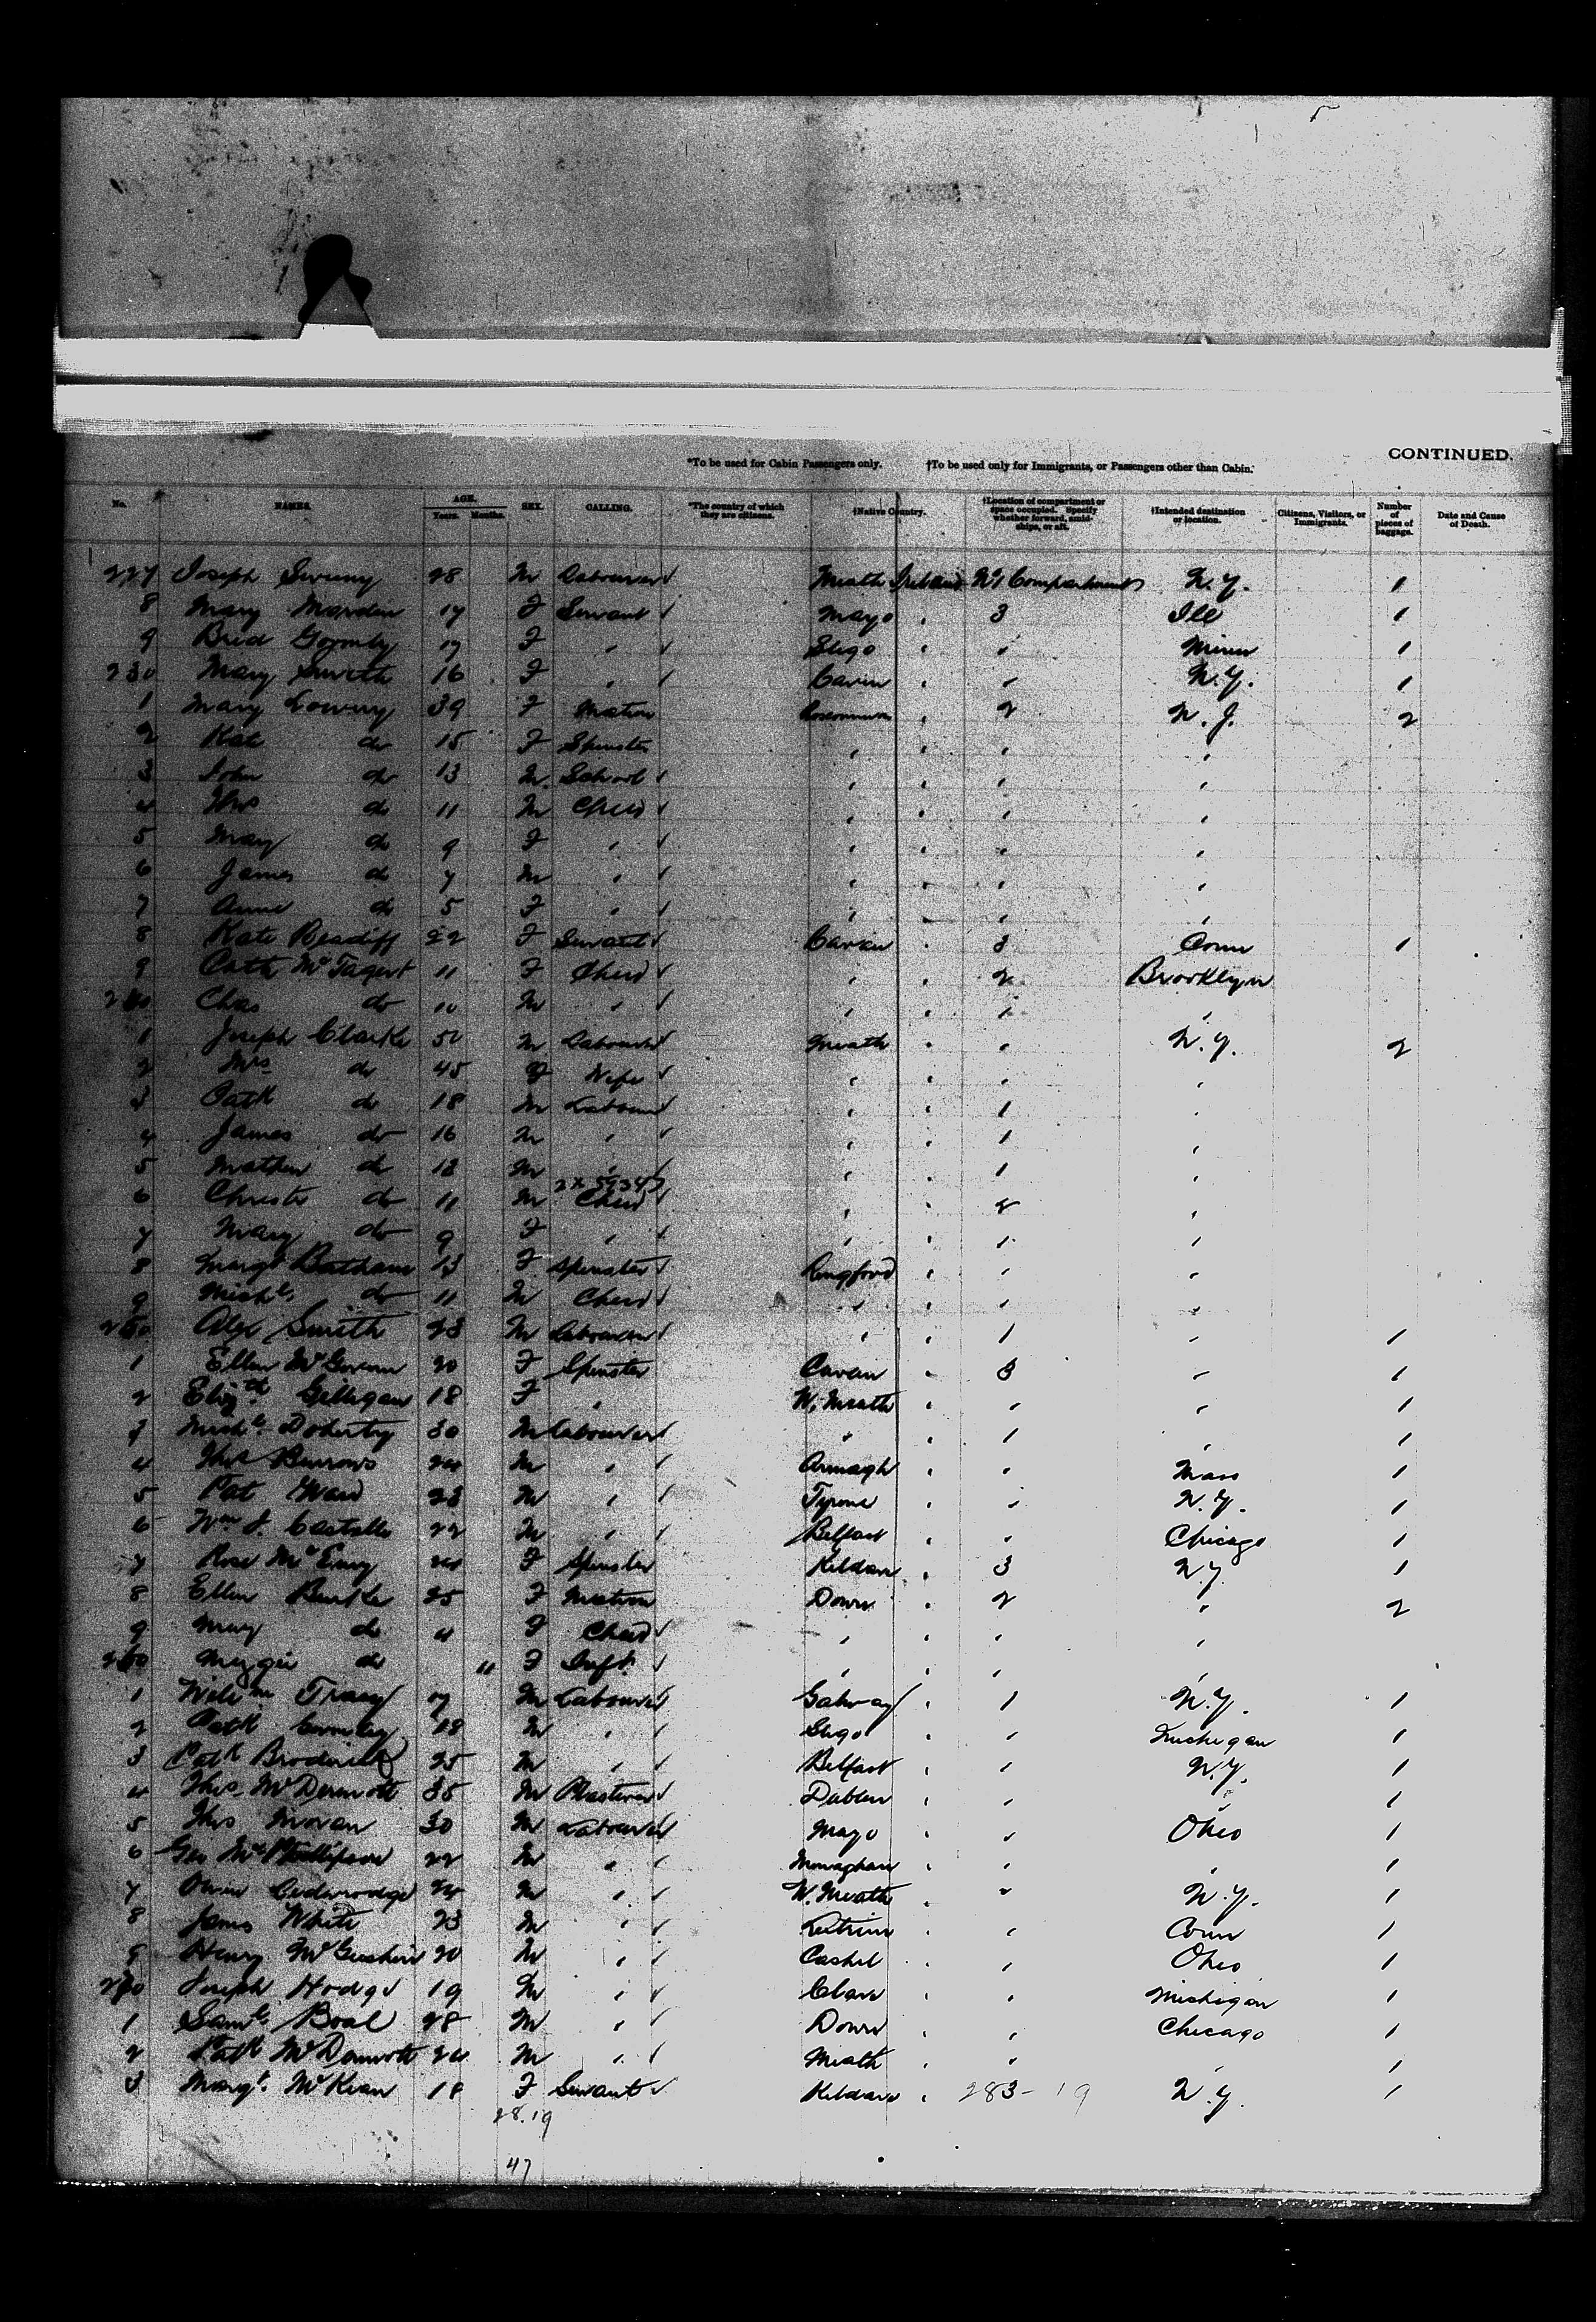 CONTINUED.
*To be used for Cabin Passengers only. †To be used only for Immigrants, or Passengers other than Cabin.
No. NAMES. AGE. Years. Months. SEX. CALLING. *The country of which they are citizens. †Native Country. †Location of compartment or space occupied. Specify whether forward, amidships, or aft. †Intended destination or location. Citizens, Visitors, or Immigrants. Number of pieces of baggage. Date and Cause of Death.
227 Joseph 28 M Labourer Meath Ireland No 1 Compartment N.Y. 1
8 Mary 17 F Servant Mayo " 3 Ill 1
9 Brid Gormly 17 F " Sligo " " Minn 1
230 Mary Smith 16 F " Cavan " " N.Y. 1
1 Mary Lowry 39 F Matron Roscommon " 2 N.J. 2
2 Kate do 15 F Spinster " " " "
3 John do 13 M School " " " "
4 Thos do 11 M Child " " " "
5 Mary do 9 F " " " " "
6 James do 7 M " " " " "
7 Anne do 5 F " " " " "
8 Kate 22 F Servant Cavan " 3 Conn 1
9 Cath McTagert 11 F Child " 2 Brooklyn
240 Chas do 10 M " " " "
1 Joseph Clarke 50 M Labourer Meath " " N.Y. 2
2 Mrs do 45 F Wife " " " "
3 Patk do 18 M Labourer " " 1 "
4 James do 16 M " " 1 "
5 Mathew do 13 M " " " 1 "
6 do 11 M Child " 2 "
7 Mary do 9 F " " " "
8 Margt 13 F Spinster Longford " " "
9 Michl do 11 M Child " " "
250 Alex Smith 23 M Labourer " 1 " 1
1 Ellen McGovern 20 F Spinster Cavan " 3 " 1
2 Elizth Gilligan 18 F " W. Meath " " " 1
3 Michl Doherty 30 M Labourer " " 1 " 1
4 Thos Burrows 24 M " Armagh " " Mass 1
5 Pat Ward 23 M " Tyrone " " N.Y. 1
6 Wm J. Costello 22 M " Belfast " Chicago 1
7 Rose 24 F Spinster Kildare " 3 N.Y. 1
8 Ellen Burke 25 F Matron Down " 2 " 2
9 May do 4 F Child " " " "
260 Maggie do 11 F Inft. " " "
1 Willm Tracy M Labourer Galway " 1 N.Y. 1
2 Patk 18 M " Sligo " Michigan 1
3 Patk Broderick 25 M " Belfast " " N.Y. 1
4 Thos. McDermott 35 M Plasterer Dublin " " " 1
5 Thos Moran 30 M Labourer Mayo " " Ohio 1
6 Geo 22 M " Monaghan " " " 1
7 Owen 24 M " W. Meath " " N.Y. 1
8 James White 23 M " Leitrim " " Conn 1
9 Henry 20 M " Cashel " " Ohio 1
270 Joseph Hodge 19 M " Clare " " Michigan 1
1 Saml Boal 28 M " Down " " Chicago 1
2 Patk McDermott 24 M " Meath " " " 1
3 Margt. McKean 18 F Servant Kildare " 283- 19 N.Y. 1
28.19
47